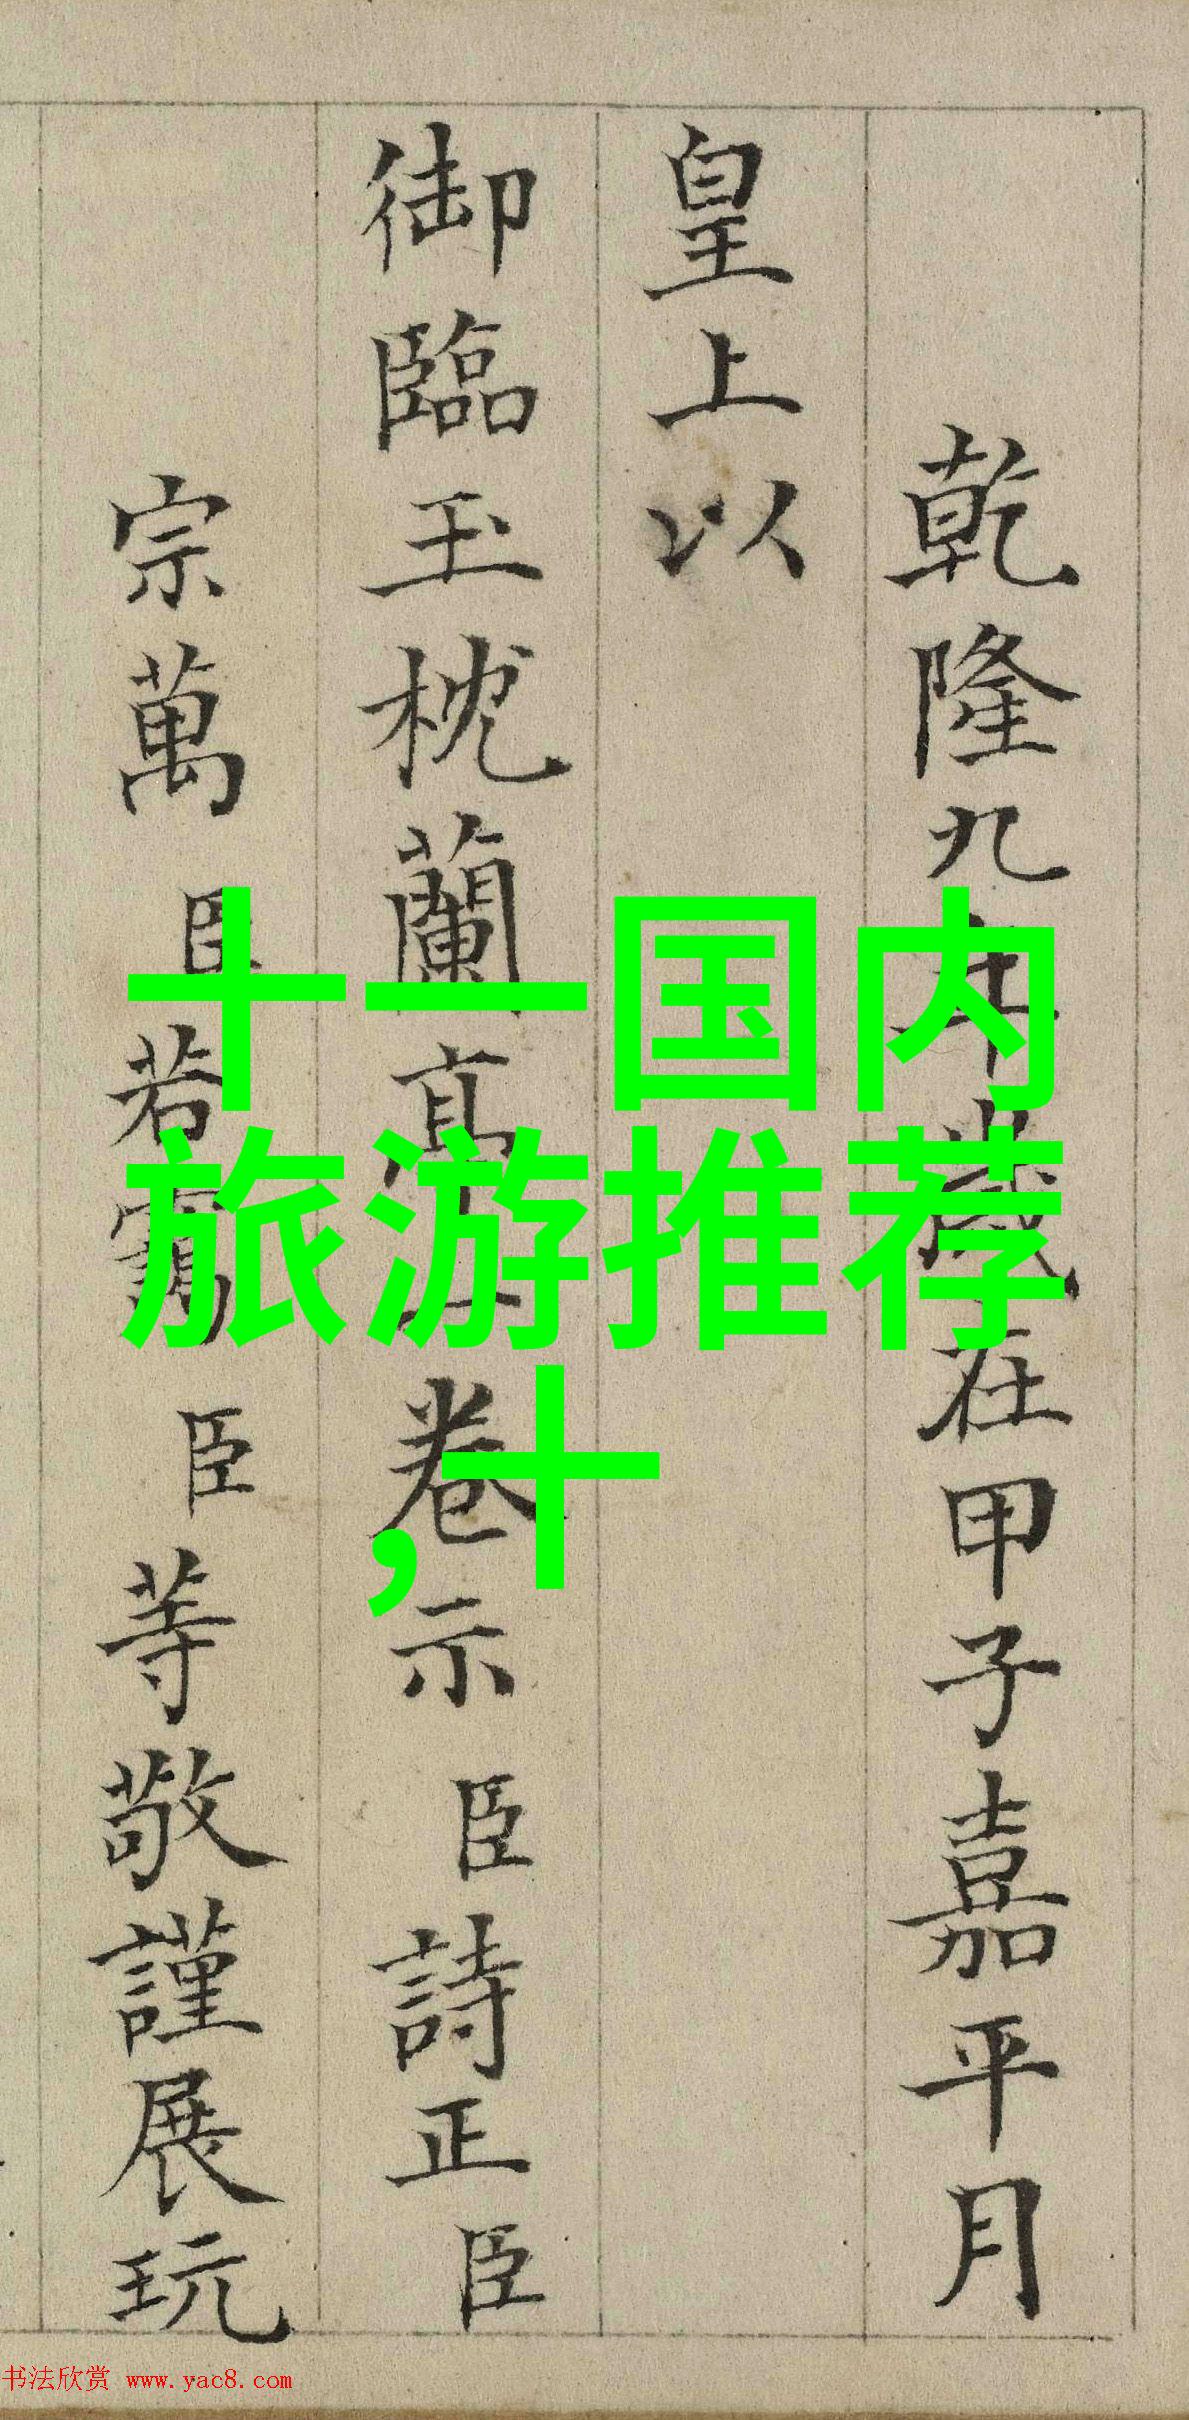 乾隆九年歲在甲子嘉平月
皇上以
御臨玉枕蘭亭一卷示臣詩正臣
宗萬臣若靄臣等敬謹展玩
十一国内
旅游推荐
,十
书法欣赏 www.yac8.com